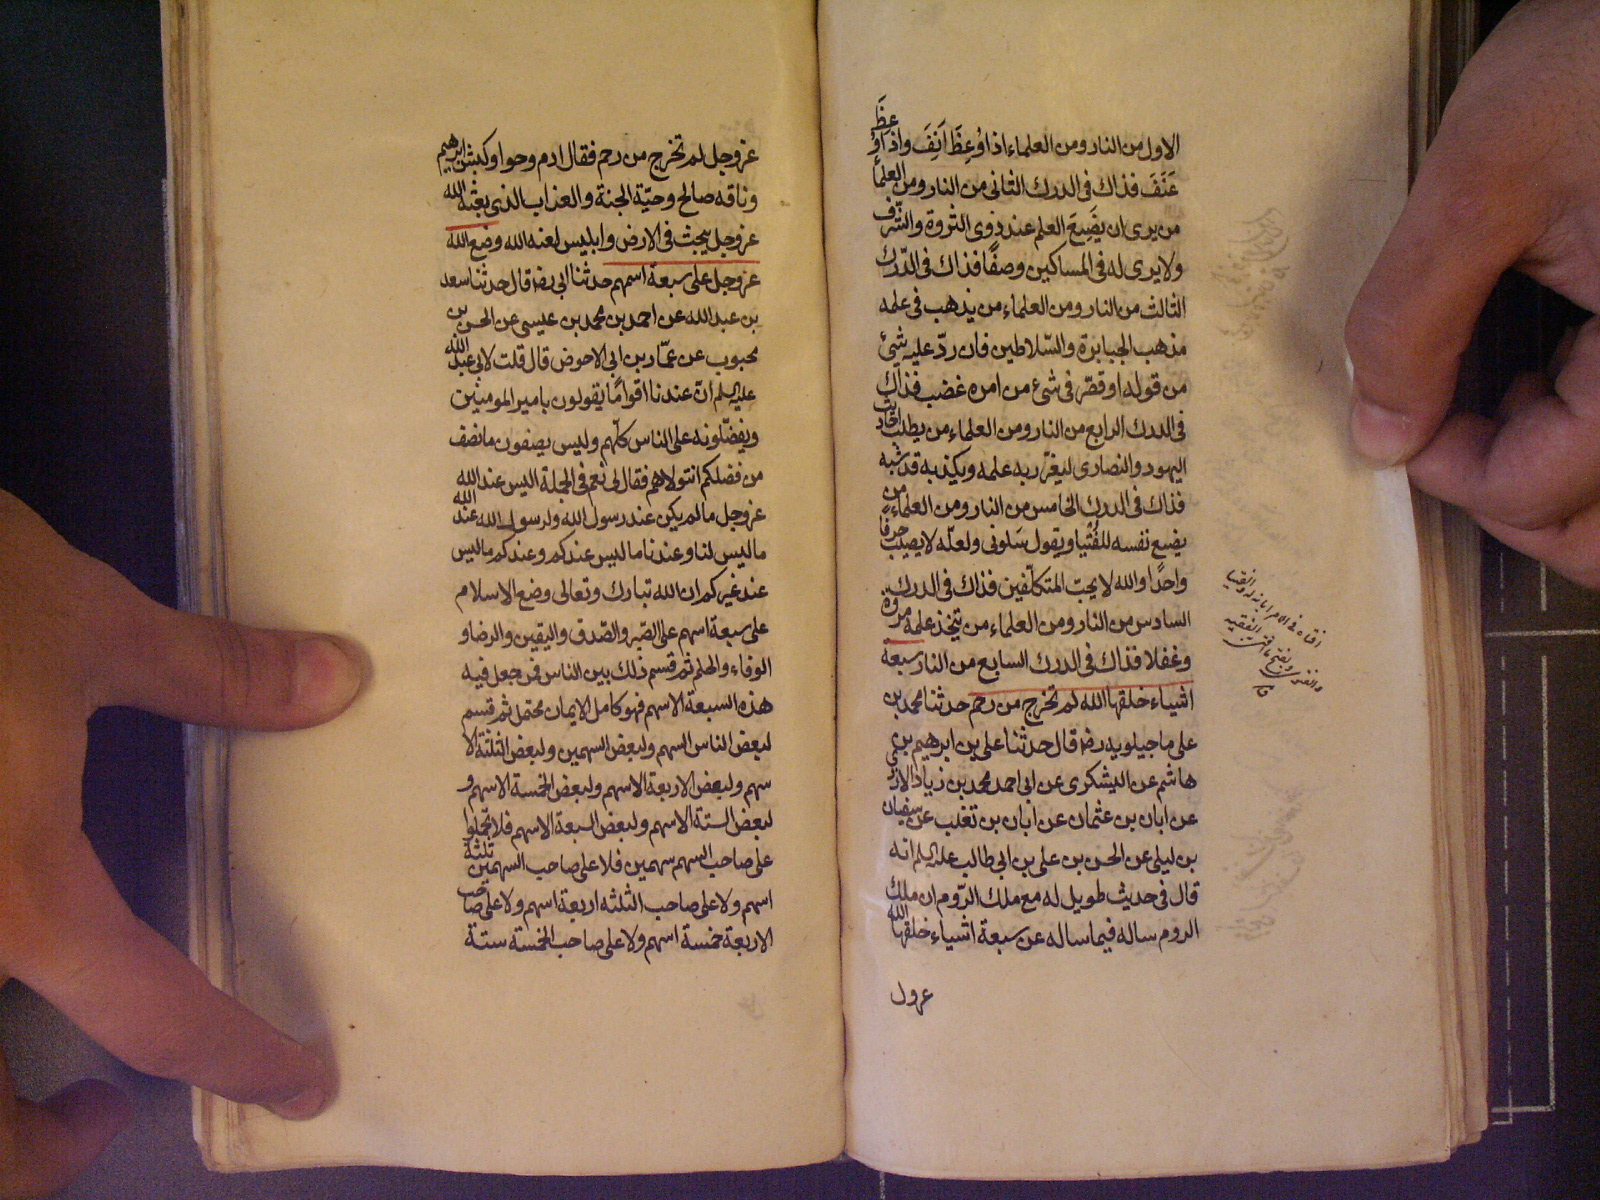 الاول من النار ومن العلماء اذا وُعِظَ اَنِفَ واذا وَعَظَ
عَنَفَ فذاك فى الدرك الثانى من النار ومن العلماء
من يرى ان يَضَعَ العلم عند ذوى الثروة والشرف
ولا يرى له فى المساكين وضعًا فذاك فى الدّرك
الثالث من النار ومن العلماء من يذهب فى علمه
مذهب الجبابرة والسّلاطين فان ردّ عليه شئ
من قوله او قصّر فى شئ من امره غضب فذاك
فى الدرك الرابع من النار ومن العلماء من يطلب احاديث
اليهود والنصارى ليغزر به علمه ويكثر به حديثه
فذاك فى الدرك الخامس من النار ومن العلماء من
يضع نفسه للفُتْيا ويقول سَلونى ولعلّه لا يصيب حرفًا
واحدًا والله لا يحبّ المتكلّفين فذاك فى الدرك
السادس من النار ومن العلماء من يتخذ علمه مروّة
وعقلا فذاك فى الدرك السابع من النار سبعة
اشياء خلقها الله لم تخرج من رحم حدثنا محمد بن
على ماجيلويه رضه قال حدثنا على بن ابرهيم بن
هاشم عن اليشكرى عن ابى احمد محمد بن زياد الازدى
عن ابان بن عثمان عن ابان بن تغلب عن سفيان
بن ليلى عن الحسن بن على بن ابى طالب عليه السلم انه
قال فى حديث طويل له مع ملك الرّوم ان ملك
الروم ساله فيما ساله عن سبعة اشياء خلقها الله
عزوجل
عزوجل لم تخرج من رحم فقال ادم وحوا وكبش ابرهيم
وناقه صالح وحيّة الجنة والغراب الذى بعثه الله
عزوجل يبحث فى الارض وابليس لعنه الله وضع الله
عزوجل على سبعة اسهم حدثنا ابى رضه قال حدثنا سعد
بن عبد الله عن احمد بن محمد بن عيسى عن الحسن بن
محبوب عن عمّار بن ابى الاحوص قال قلت لابى عبد الله
عليه السلم ان عندنا اقوامًا يقولون بامير المومنين
ويفضّلونه على الناس كلّهم وليس يصفون ما نصف
من فضلكم انتولاهم فقال لى نعم فى الجملة اليس عند الله
عزوجل ما لم يكن عند رسول الله ولرسول الله عند الله
ما ليس لنا وعندنا ما ليس عندكم وعندكم ما ليس
عند غيركم ان الله تبارك وتعالى وضع الاسلام
على سبعة اسهم على الصّبر والصّدق واليقين والرضا و
الوفاء والعلم ثم قسم ذلك بين الناس فمن جعل فيه
هذه السبعة الاسهم فهو كامل الايمان محتمل ثم قسم
لبعض الناس السهم ولبعض السهمين ولبعض الثلثة الا
سهم ولبعض الاربعة الاسهم ولبعض الخمسة الاسهم و
لبعض الستة الاسهم ولبعض السبعة الاسهم فلا تحملوا
على صاحب السهم سهمين فلا على صاحب السهمين ثلثة
اسهم ولا على صاحب الثلثه اربعة اسهم ولا على صاحب
الاربعة خمسة اسهم ولا على صاحب الخمسة ستة